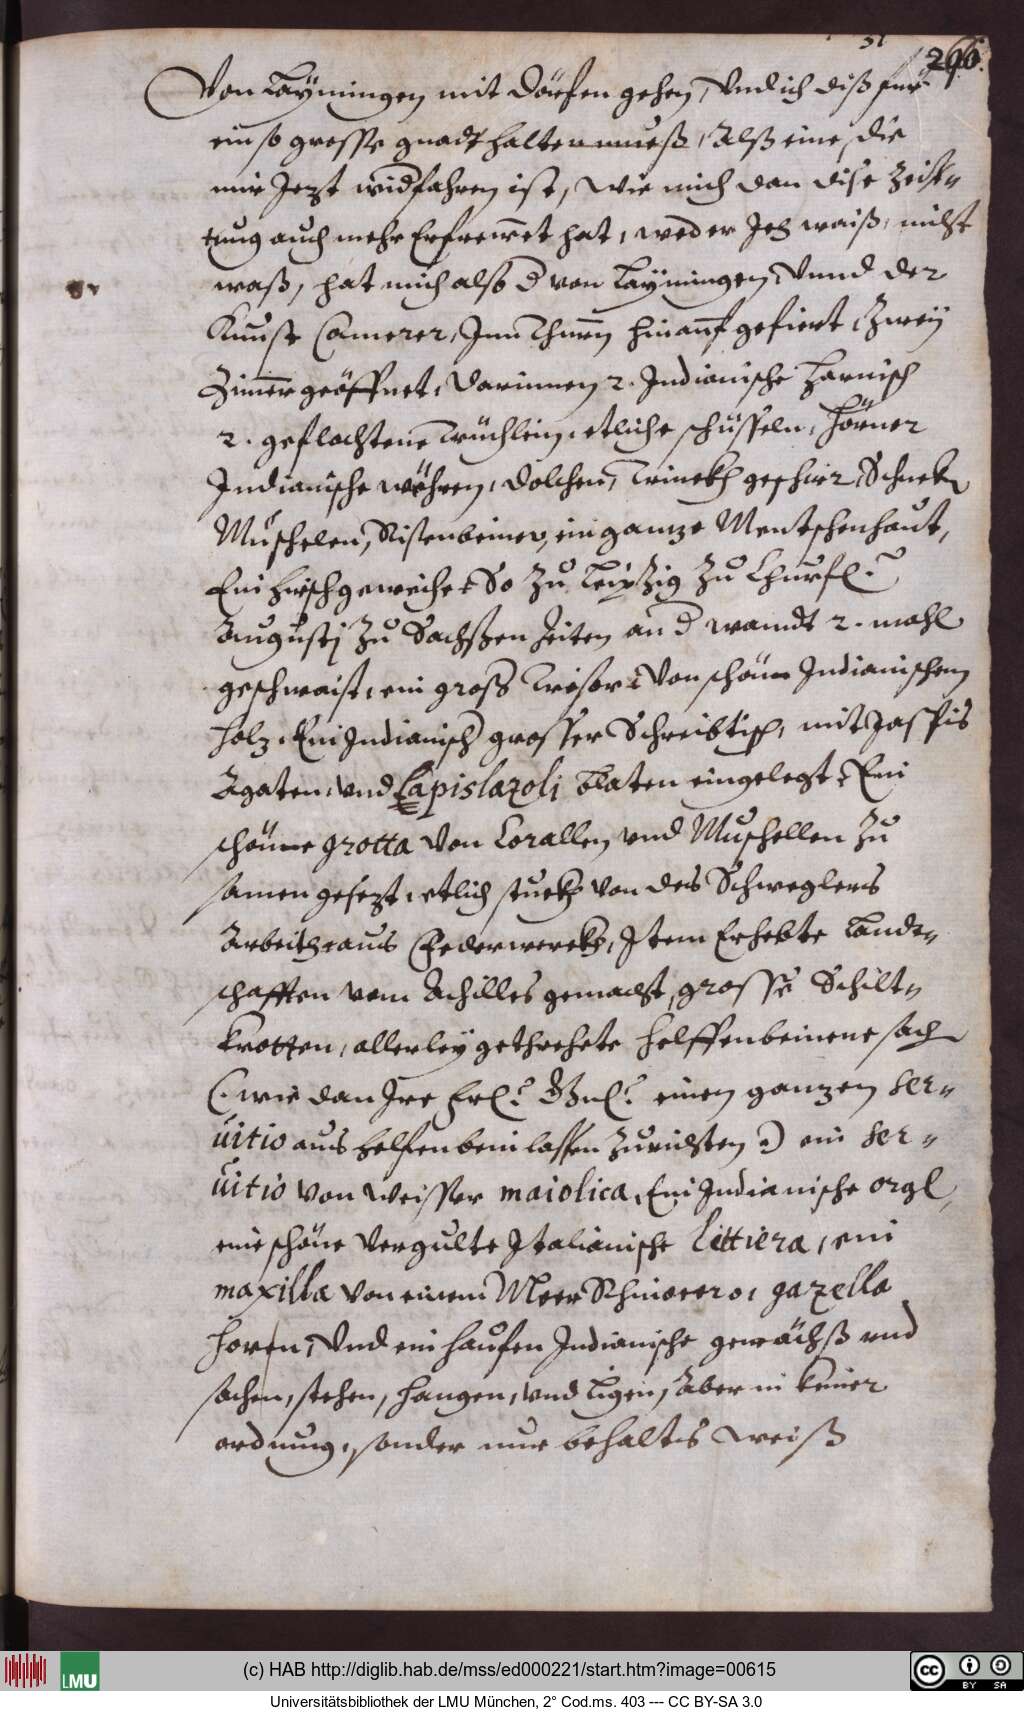 51
296.
Von Layningen mit dörfen gehen, Vnd ich diß für
ein so grosse gnadt halten mueß, Alß eine, die
mir Jezt widfahren ist, wie mich dan dise Zeit=
tung auch mehr Erfreuet hat, weder Ich waiß, nichst
waß, hat mich also d von Layningen, Vnnd der
Kunst Camerer, Inn Thurn hinauf gefiert, Zwey
Zimer geöffnet, darinnen 2. Indianische Harnisch
2. geflochtene Trüchlein, etliche schüsseln, Hörner
Indianische wöhren, dolchen, Trinckh geschirr, Schnek
Muschelen, ein gantze Mentschenhaut,
Ein Hirschgeweihe, So zu Leipzig zu Churf.
Augustj zu Sachßen Zeiten an d wandt 2. mahl
geschwaist, ein groß Tresor, Von schönem Indianischem
holz, Ein Indianisch grosser Schreibtisch, mit Jaspis
Agaten, vnd Lapislazoli blaten eingelegt, Ein
schöne grotta Von Corallen, vnd Muschellen Zu
samen gesezt, etlich stuckh von des Schweglers
Arbeit, aus Federwerckh, Item Erhebte Lande=
schafften vom Achilles gemacht, grosse Schilt=
krotten, allerley gethrehete helffenbeinene sach
(wie dan Ire Erl. Gnl. einen ganzen ser=
uitio aus helfenbein lassen Zurichten) ein ser=
uitio von weisser maiolica, Ein Indianische orgl,
eine schöne vergulte Italianische littiera, ein
maxilla von einem Meer gazella
horen, Vnd ein hauffen Indianische gewächß vnd
sachen, stehen, hangen, vnd ligen, Aber in keiner
ordnung, sonder nur behalts weiß
(c) HAB http://diglib.hab.de/mss/ed000221/start.htm?image=00615
LMU
BY SA
Universitätsbibliothek der LMU München, 2° Cod.ms. 403 --- CC BY-SA 3.0